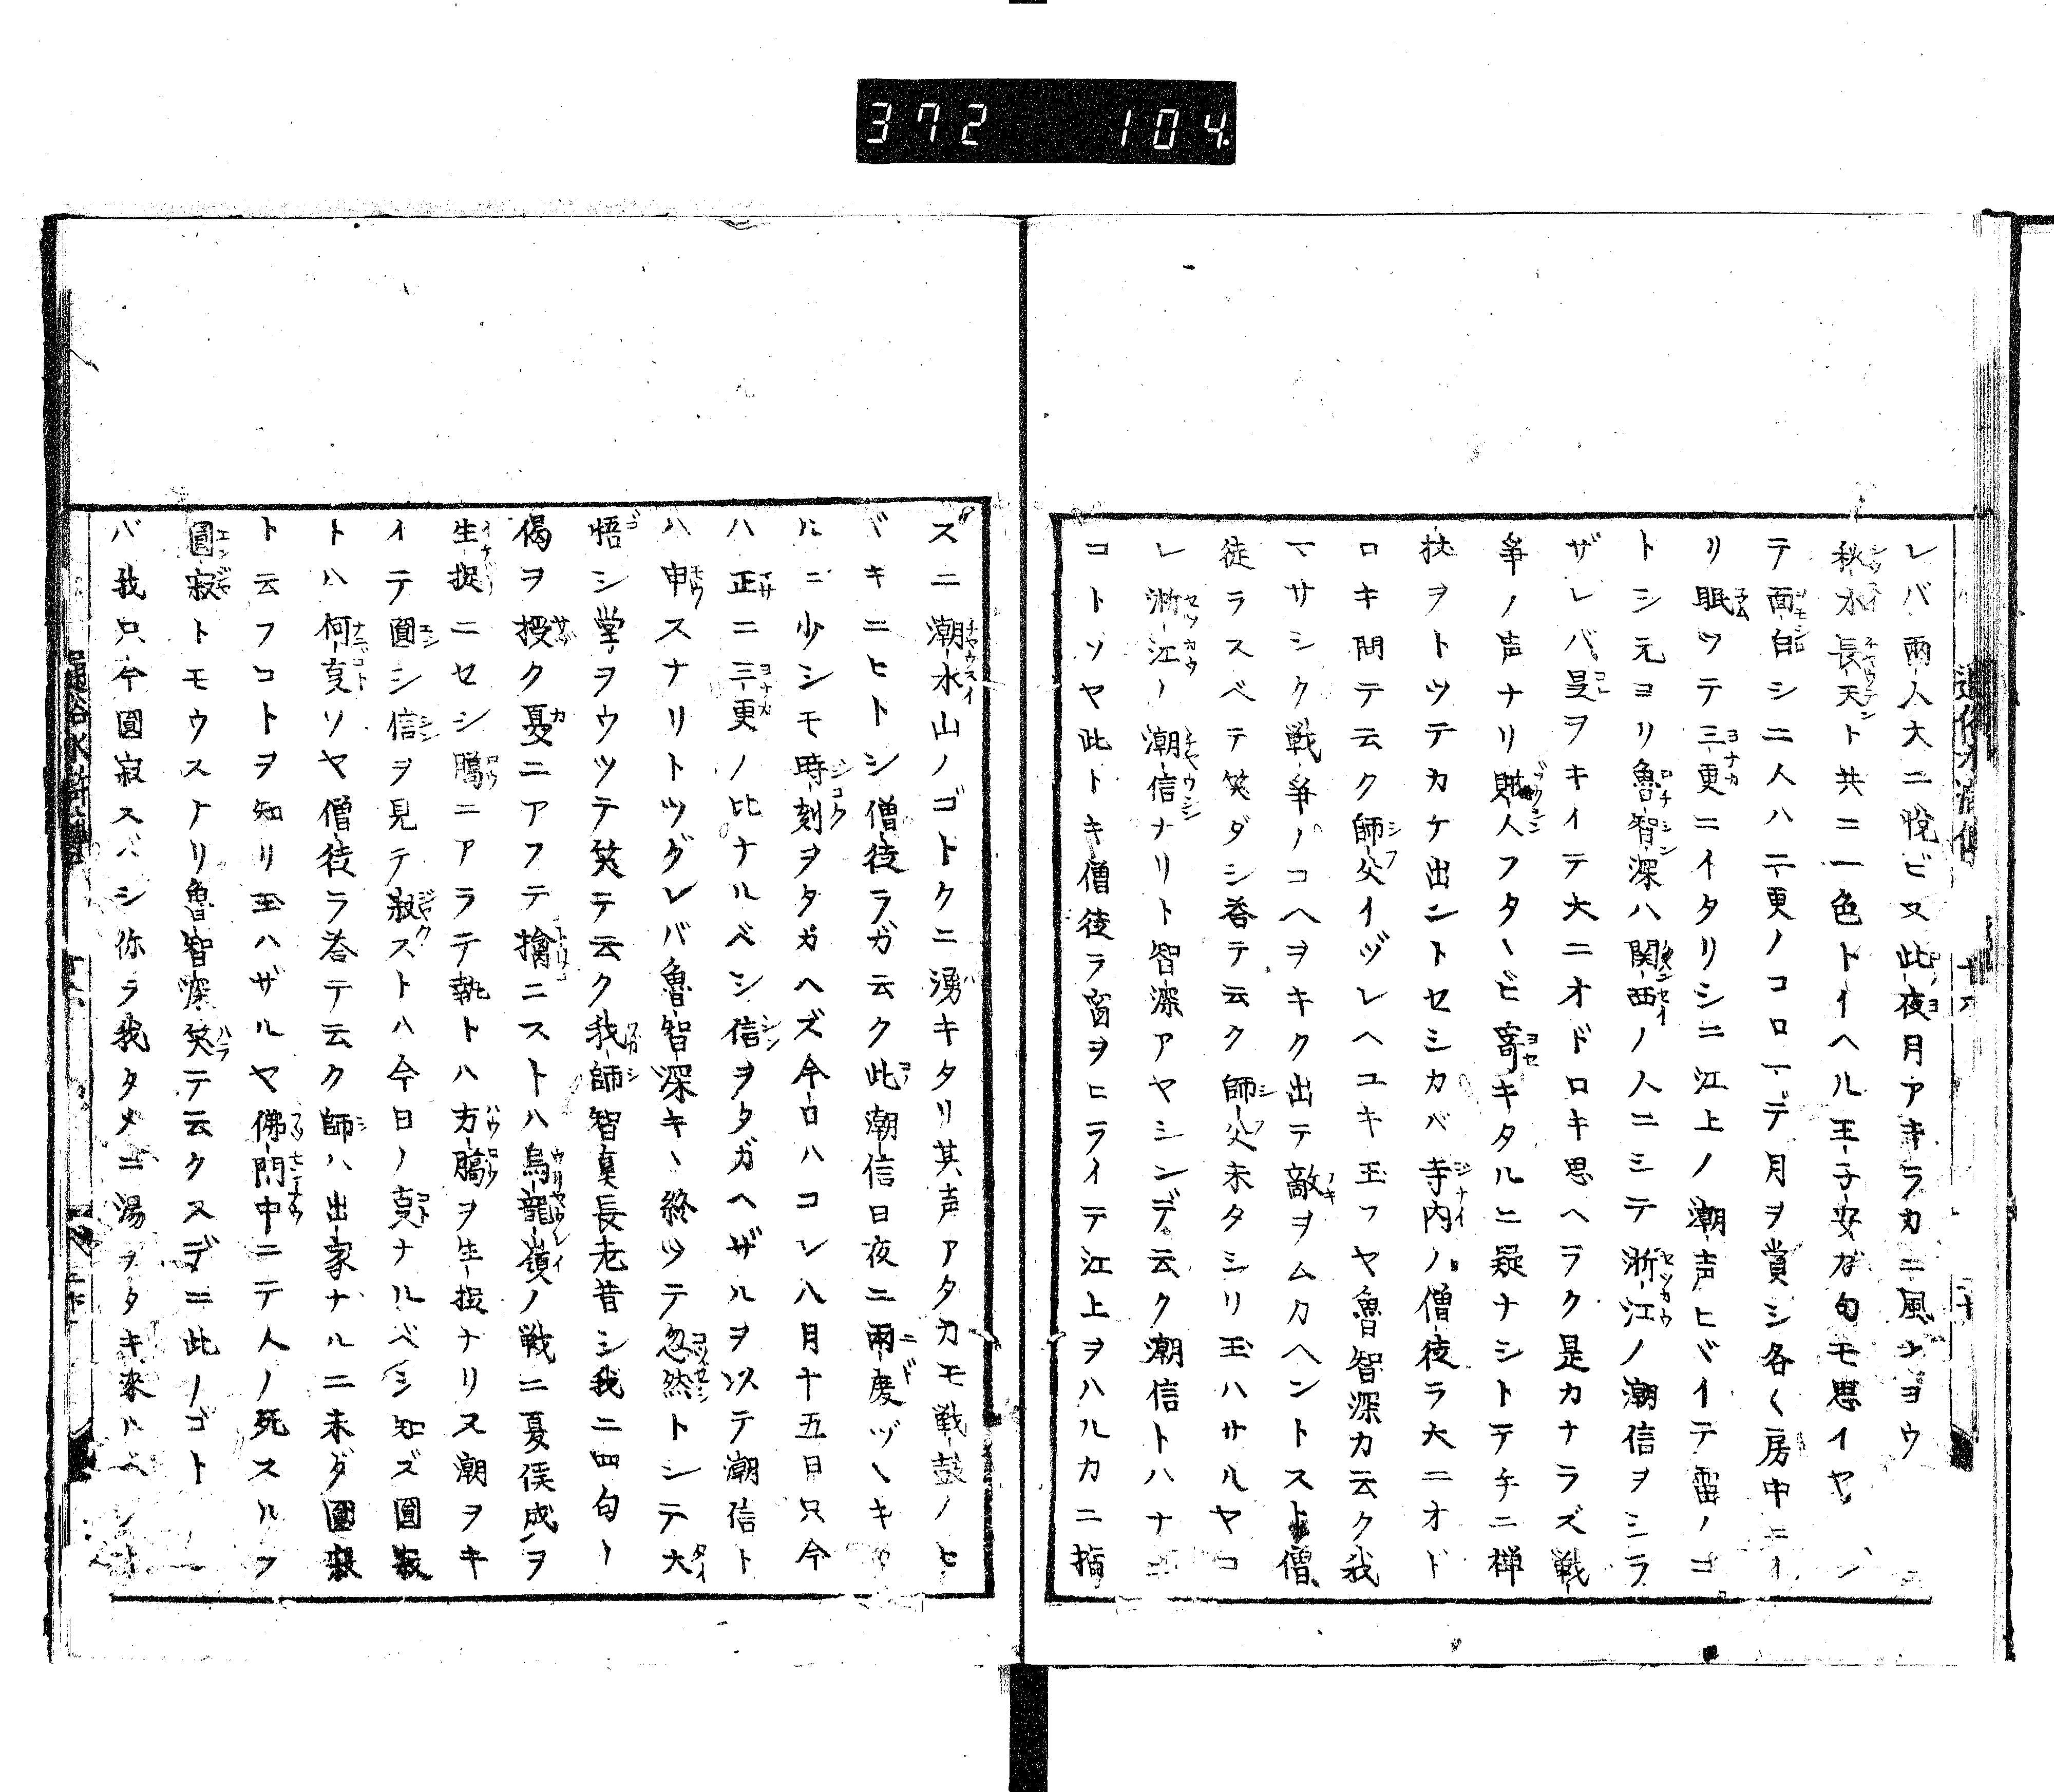 372 104
レバ兩人大ニ悦ビ又此夜月アキラカニ風ナヨウ
秋水長天ト共ニ一色トイヘル王子安ガ句モ思イヤ
テ面白シ二人ハ二更ノコロマデ月ヲ賞シ各〱房中ニイ
リ眠ツテ三更ニイタリシニ江上ノ潮声ヒヾイテ雷ノゴ
トシ元ヨリ魯智深ハ関西ノ人ニシテ浙江ノ潮信ヲシラ
ザレバ是ヲキイテ大ニオドロキ思ヘラク是カナラズ戦
争ノ声ナリ賊人フタヽビ寄キタルニ疑ナシトテチニ禅
杖ヲトツテカケ出ントセシカバ寺内ノ僧徒ラ大ニオド
ロキ問テ云ク師父イヅレヘユキ玉フヤ魯智深カ云ク我
マサシク戦争ノコヘヲキク出テ敵ヲムカヘントスト僧
徒ラスベテ笑ダシ答テ云ク師父未タシリ玉ハサルヤコ
レ浙江ノ潮信ナリト智深アヤシンデ云ク潮信トハナニ
コトソヤ此トキ僧徒ラ窗ヲヒライテ江上ヲハルカニ指
スニ潮水山ノゴトクニ湧キタリ其声アタカモ戦鼓ノヒ
ビキニヒトシ僧徒ラガ云ク此潮信日夜ニ兩度ヅヽキタ
ルニ少シモ時刻ヲタガヘズ今日ハコレ八月十五日只今
ハ正ニ三更ノ比ナルベシ信ヲタガヘザルヲ以テ潮信ト
ハ申スナリトツグレバ魯智深キヽ終ツテ忽然トシテ大
悟シ掌ヲウツテ笑テ云ク我師智真長老昔シ我ニ四句ノ
偈ヲ授ク夏ニアフテ擒ニストハ烏龍嶺ノ戦ニ夏侯成ヲ
生捉ニセシ臈ニアラテ執トハ方臈ヲ生捉ナリス潮ヲキ
イテ圓シ信ヲ見テ寂ストハ今日ノ㕝ナルベシ知ズ圓寂
トハ何㕝ソヤ僧徒ラ答テ云ク師ハ出家ナルニ未ダ圓寂
ト云フコトヲ知リ玉ハザルヤ佛門中ニテ人ノ死スルヲ
圓寂トモウスナリ魯智深笑テ云クスデニ此ノゴト
バ我只今圓寂スベシ你ラ我タメニ湯ヲタキ來ルベシト